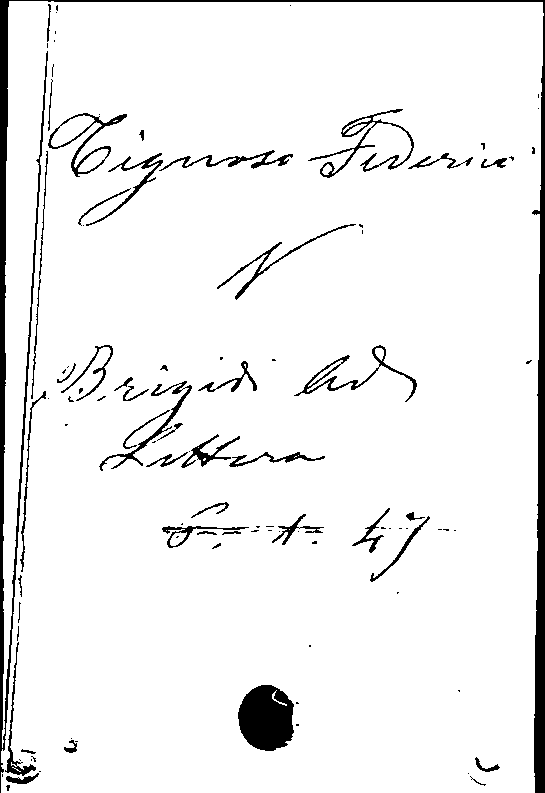 Tignoso Federico
V
Brigidi Ad
Lettera
S. A. 47